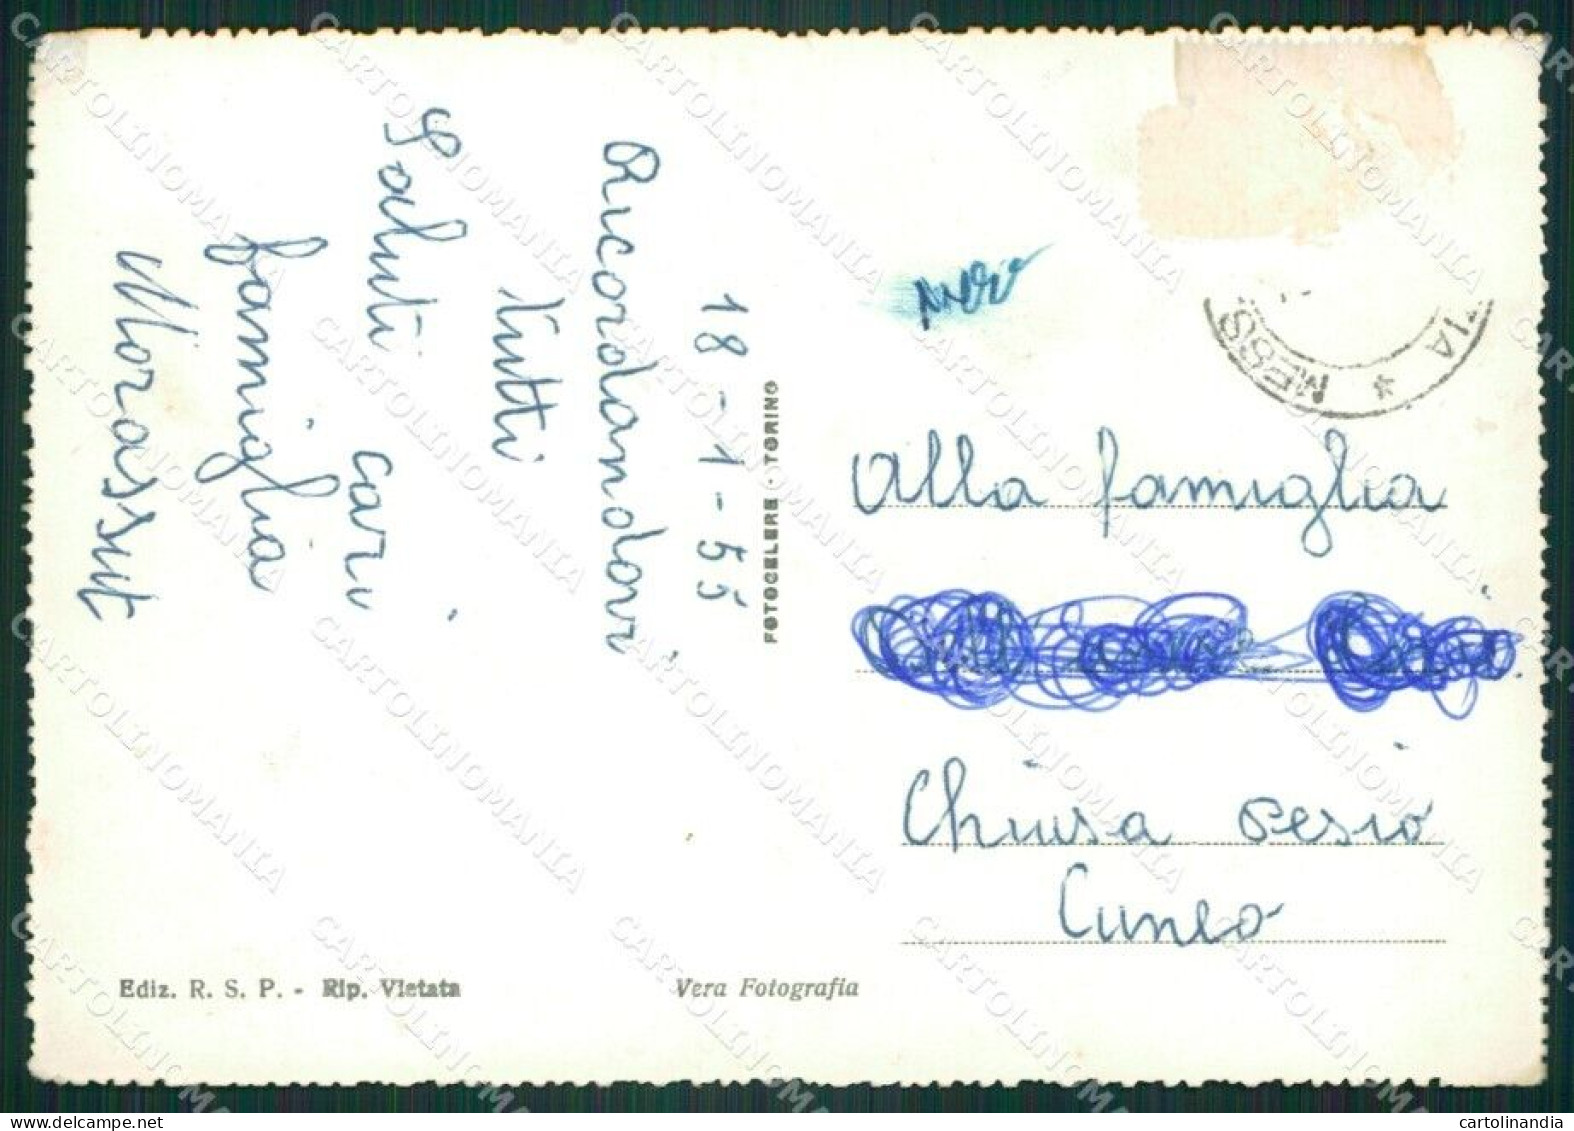 18-1-55
Ricordandovi
tutti
Saluti cari
famiglia
Morassut
FOTOCELERE · TORINO
Alla famiglia
Chiusa Pesio
Cuneo
Ediz. R. S. P. - Rip. Vietata
Vera Fotografia
IA * MESS
CARTOLINOMANIA
cartolinandia